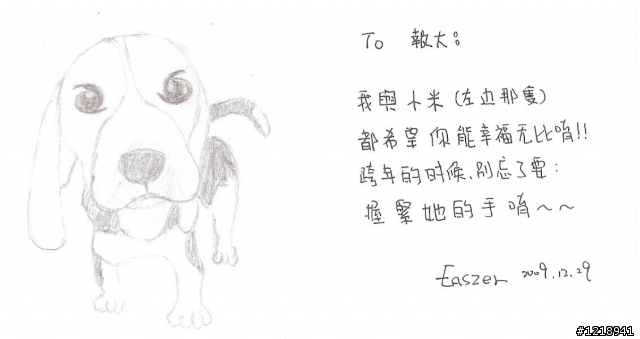 To 報大：
我與小米(左边那隻)
都希望你能幸福无比唷!!
跨年的时候,別忘了要：
握緊她的手唷～～
Easzer 2009.12.29
#1218941